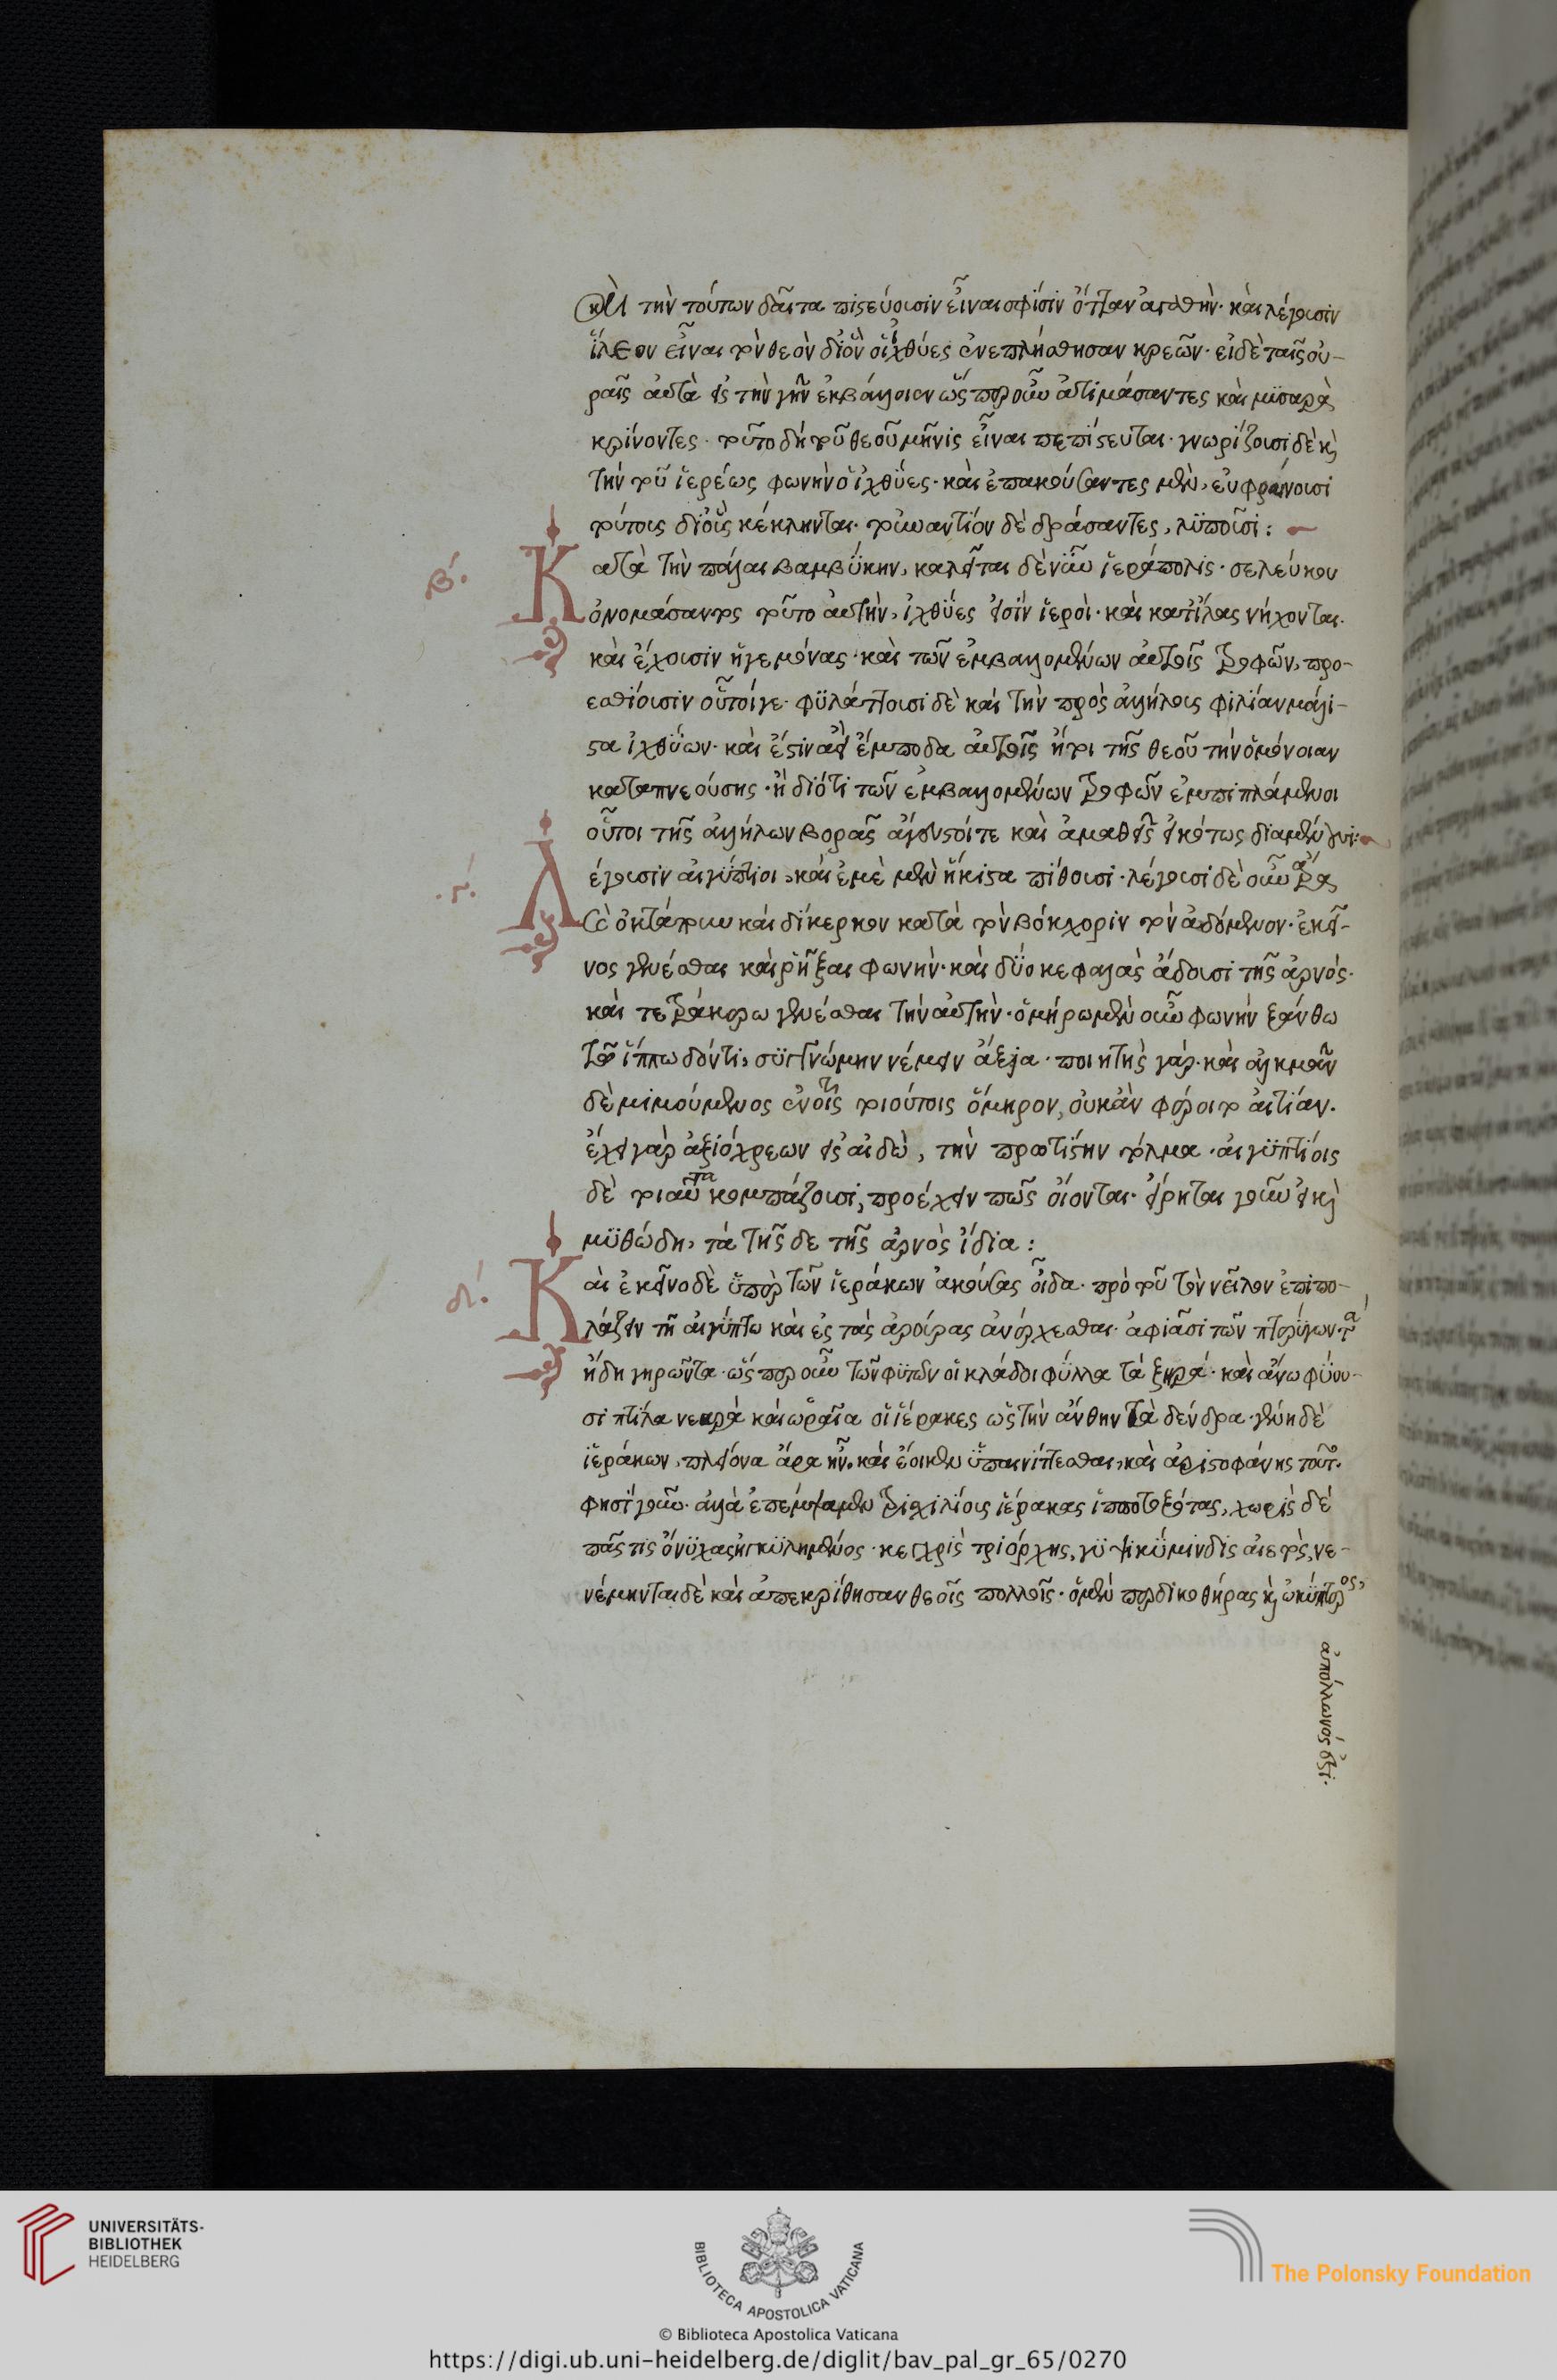 καὶ τὴν τούτων δαῖτα πιστεύουσιν εἶναι σφίσιν ὄτταν ἀγαθὴν· καὶ λέγουσιν
ἵλεον εἶναι τὸν θεὸν δι' ὃν οἱ ἰχθύες ἐνεπλήσθησαν κρεῶν· εἰ δὲ ταῖς οὐ-
ραῖς αὐτὰ εἰς τὴν γῆν ἐκβάλλοιεν ὥσπερ οὖν ἀτιμάσαντες καὶ μϋσαρὰ
κρίνοντες· τοῦτο δὴ τοῦ θεοῦ μῆνις εἶναι πεπίστευται· γνωρίζουσι δὲ καὶ
τὴν τοῦ ἱερέως φωνὴν οἱ ἰχθΰες· καὶ ἐπακούσαντες μὲν, εὐφραίνουσι
τούτους δι' οὓς κέκληνται· τοὐναντίον δὲ δράσαντες, λϋποῦσι:
β'. Κατὰ τὴν πάλαι βαμβΰκην, καλεῖται δὲ νῦν ἱεράπολις· σελεύκου
ὀνομάσαντος τοῦτο αὐτὴν, ἰχθΰες εἰσὶν ἱεροὶ· καὶ κατ' ἴλας νήχονται·
καὶ ἔχουσιν ἡγεμόνας· καὶ τῶν ἐμβαλλομένων αὐτοῖς τροφῶν, προ-
εσθίουσιν οὗτοίγε· φϋλάττουσι δὲ καὶ τὴν πρὸς ἀλλήλους φιλίαν μάλι-
στα ἰχθΰων· καὶ ἔστιν ἀεὶ ἔνσποδα αὐτοῖς ἤτοι τῆς θεοῦ τὴν ὁμόνοιαν
καταπνεούσης· ἢ διότι τῶν ἐμβαλλομένων τροφῶν ἐμπιπλάμενοι
οὗτοι τῆς ἀλλήλων βορᾶς ἄγευστοί τε καὶ ἀμαθεῖς εἰκότως διαμένουσι:
γ'. Λέγουσιν αἰγΰπτιοι, καὶ ἐμὲ μὲν ἥκιστα πίθουσι· λέγουσι δὲ οὖν ἄρνα
ὀκτάπουν καὶ δίκερκον κατὰ τὸν βόκχοριν τὸν ἀδόμενον· ἐκεῖ-
νος γενέσθαι καὶ ῥῆξαι φωνὴν· καὶ δΰο κεφαλὰς ἄδουσι τῆς ἀρνὸς·
καὶ τετράκερω γενέσθαι τὴν αὐτὴν· ὁμήρω μὲν οὖν φωνὴν ξάνθω
τῶ ἵππω δόντι, συγγνώμην νέμειν ἄξια· ποιητὴς γάρ· καὶ ἀλκμᾶν
δὲ μιμούμενος ἐν τοῖς τοιούτοις ὅμηρον, οὐκ ἂν φέροιτο αἰτίαν·
ἔχει γὰρ ἀξιόχρεων εἰς αἰδῶ, τὴν πρωτίστην τόλμα· αἰγϋπτίοις
δὲ τοιαῦτα κομπάζουσι, προσέχειν πῶς οἴονται· εἴρηται γοῦν εἰ καὶ
μϋθώδη, τὰ τῆς δε τῆς ἀρνὸς ἴδια:
δ'. Καὶ ἐκεῖνο δὲ ὑπὲρ τῶν ἱεράκων ἀκούσας οἶδα· πρὸ τοῦ τὸν νεῖλον ἐπιπο-
λάζειν τῇ αἰγΰπτω καὶ ἐς τὰς ἀρούρας ἀνέρχεσθαι· ἀφιᾶσι τῶν πτερΰγων τὰ
ἤδη γηρῶντα· ὥσπερ οὖν τῶν φϋτῶν οἱ κλάδοι φΰλλα τὰ ξηρά· καὶ ἀναφΰου-
σι πτίλα νεαρὰ καὶ ὡραῖα οἱ ἱέρακες ὡς τὴν ἄνθην τὰ δένδρα· γένη δὲ
ἱεράκων, πλείονα ἄρα ἦν. καὶ ἔοικεν ὑπαινίττεσθαι, καὶ ἀριστοφάνης τοῦτ.
φησὶ γοῦν· ἀλλὰ ἐπέμψαμεν τρισχιλίους ἱέρακας ἱπποτοξότας, χωρεῖ δὲ
πᾶς τις ὄνϋχας ἠγκϋλημένος· κεγχρὶς τριόρχης, γΰψ κΰμινδις αἰετὸς, νε-
νέμηνται δὲ καὶ ἀπεκρίθησαν θεοῖς πολλοῖς· ὁ μὲν περδικοθήρας καὶ ὠκΰπτερος,
ἀπόλλωνός ἐστι·
UNIVERSITÄTS-
BIBLIOTHEK
HEIDELBERG
BIBLIOTECA APOSTOLICA VATICANA
The Polonsky Foundation
© Biblioteca Apostolica Vaticana
https://digi.ub.uni-heidelberg.de/diglit/bav_pal_gr_65/0270